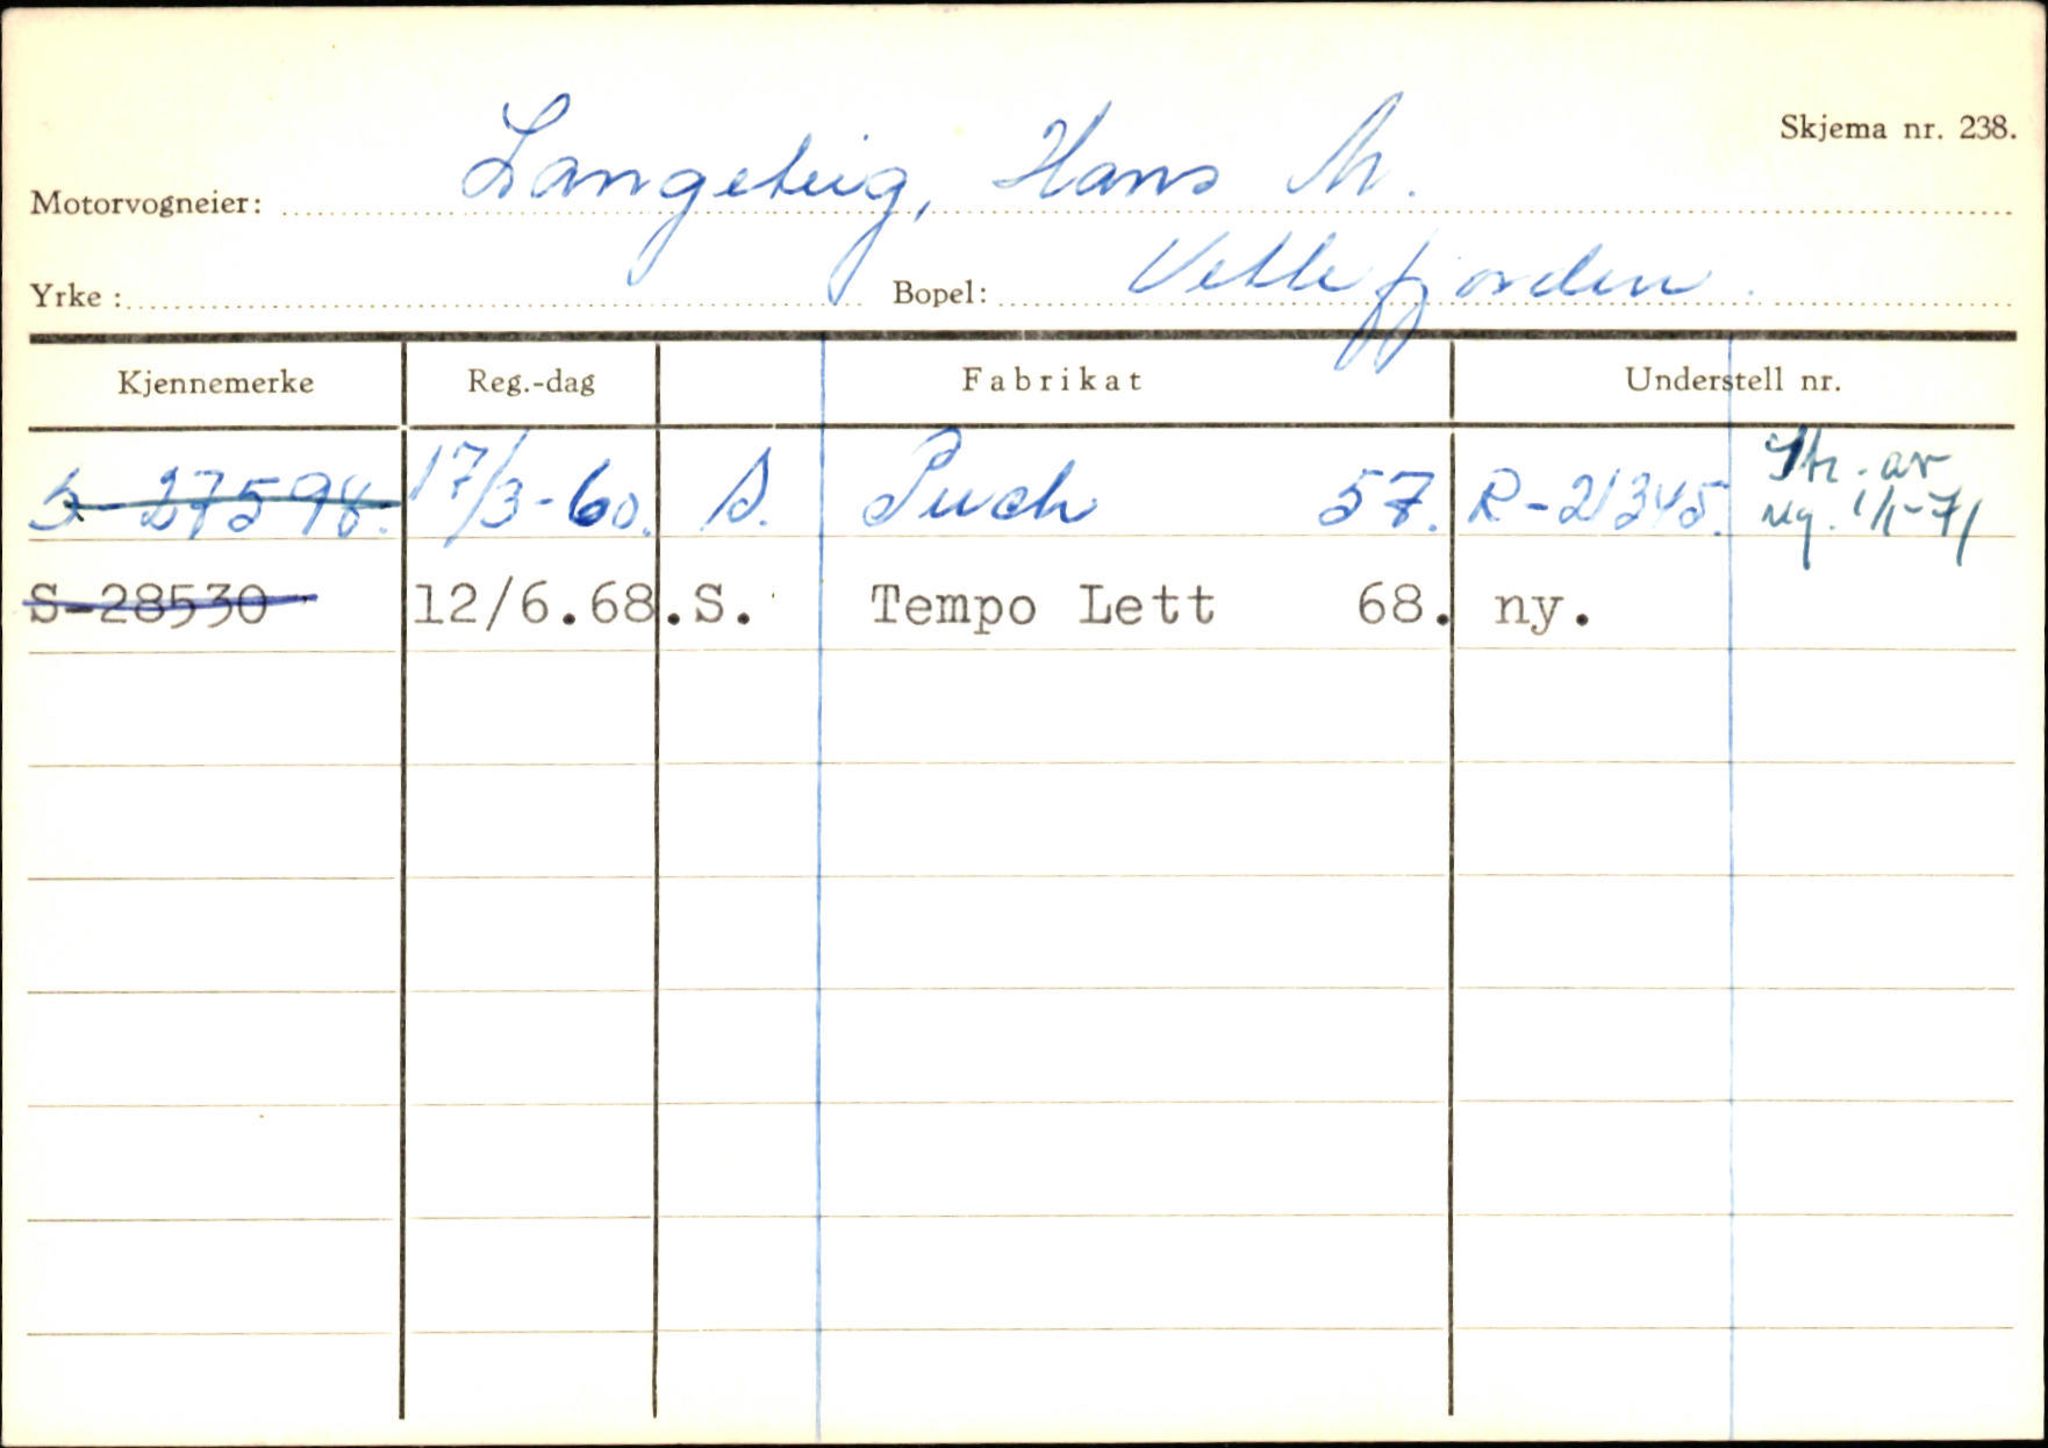 Skjema nr. 238.
Motorvogneier: Langeteig, Hans M.
Yrke : Bopel: Vetlefjorden.
Kjennemerke Reg.-dag Fabrikat Understell nr.
S-27598. 17/3-60. S. Puch 57. R-21345. Str. av
reg. 1/1-71
S-28530 12/6.68.S. Tempo Lett 68. ny.